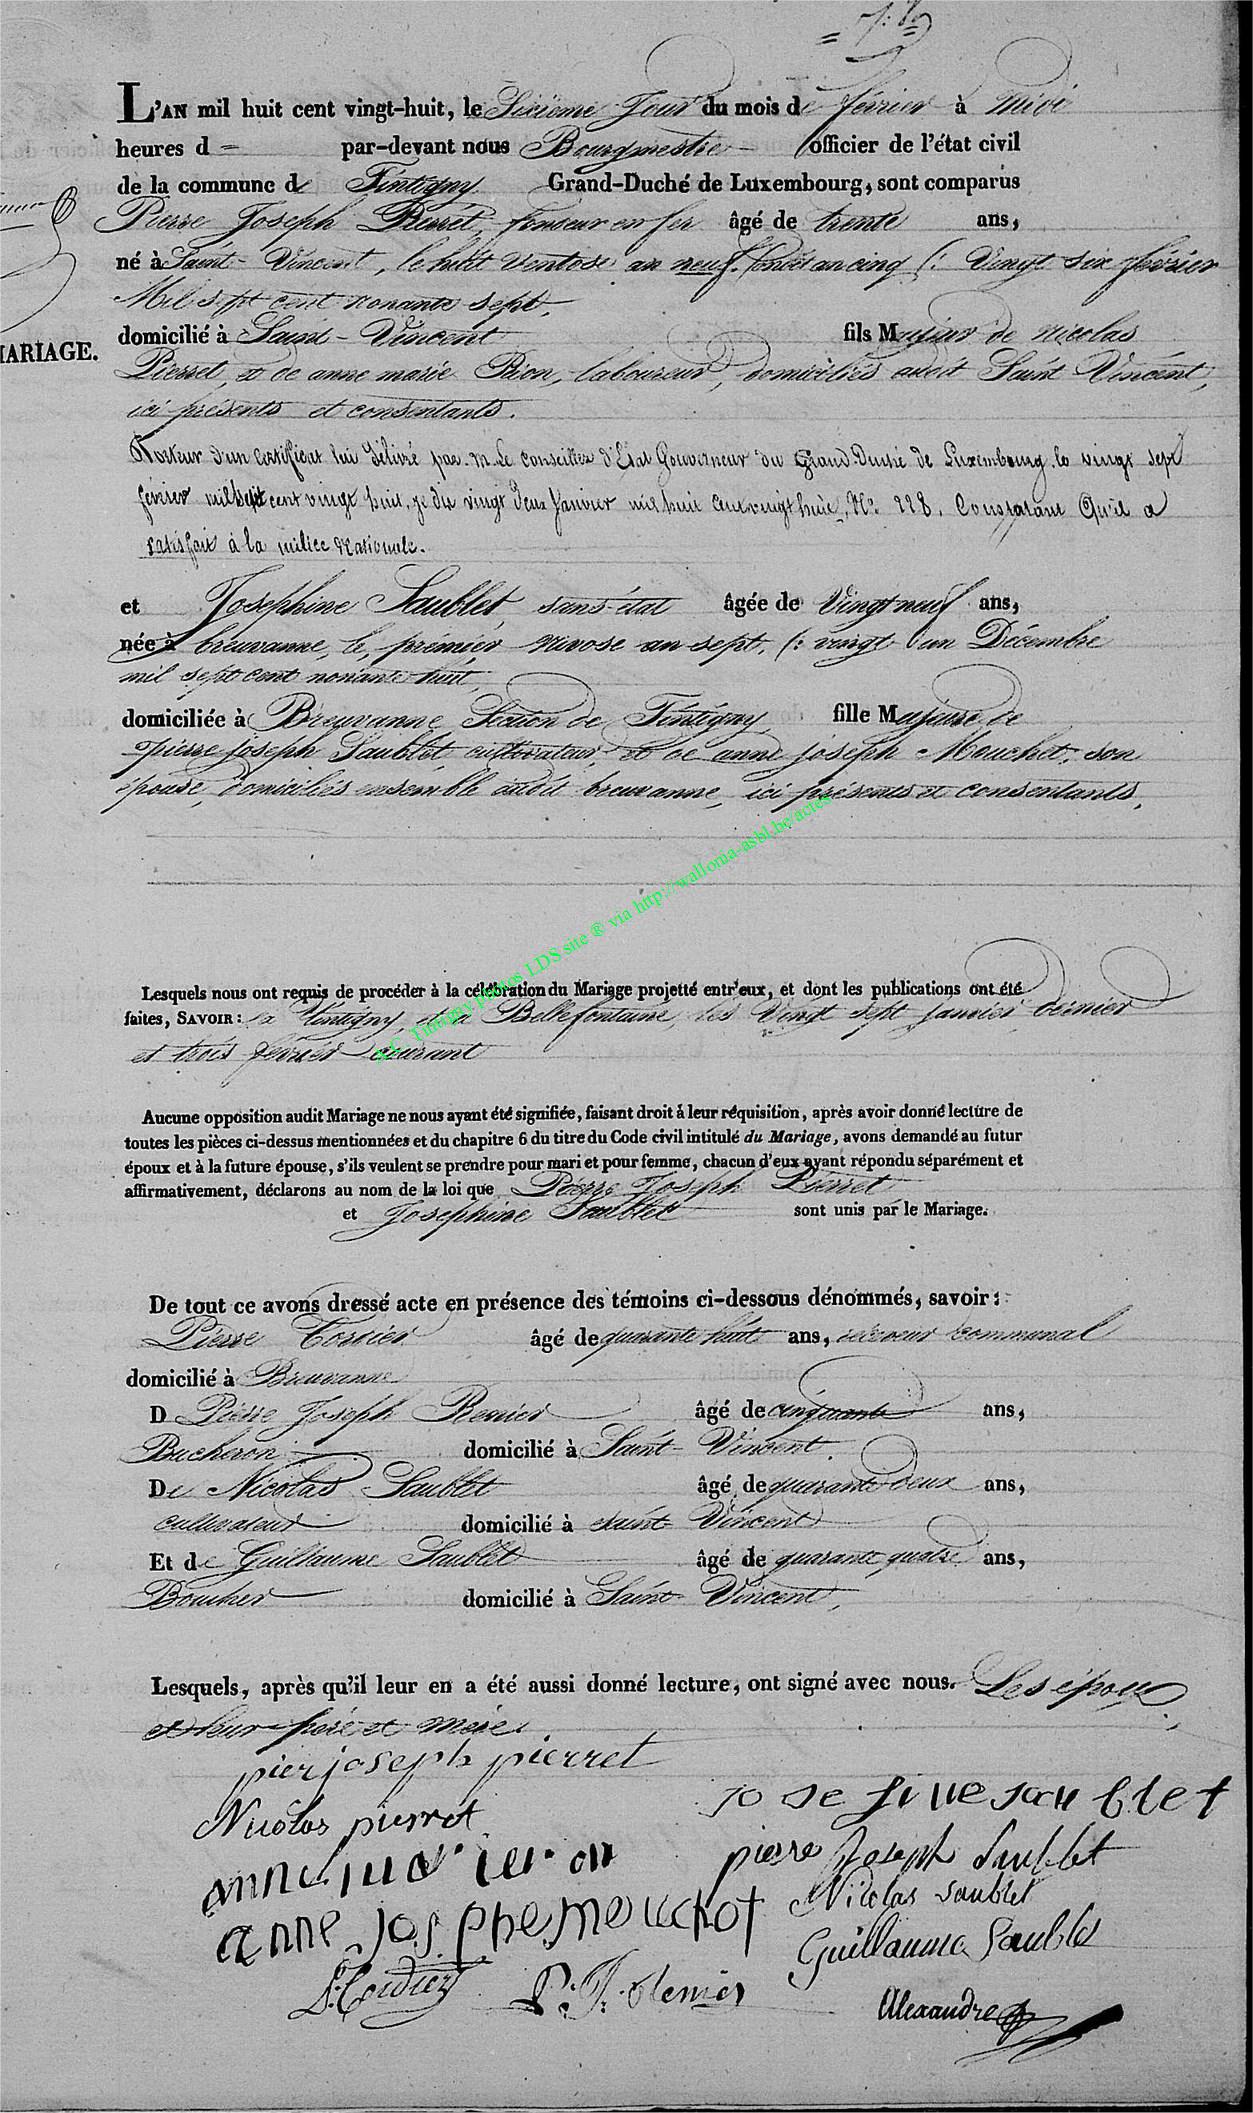 L'AN mil huit cent vingt-huit, le Sixième Jour du mois de février à midi
heures d = par-devant nous Bourgmestre officier de l'état civil
de la commune de Tintigny Grand-Duché de Luxembourg, sont comparus
Pierre Joseph Pierret, âgé de trente ans,
né à Saint-Vincent, le huit Ventose an neuf an cinq (: Vingt six février
Mil sept cent nonante sept,
MARIAGE.
domicilié à Saint-Vincent fils Majeur de nicolas
Pierret, et de anne marie Rion, laboureur, domiciliés audit Saint Vincent,
ici présents et consentants.
Porteur d'un certificat lui délivré par m. Le conseiller d'Etat Gouverneur du Grand-Duché de Luxembourg le vingt sept
février mil huit cent vingt huit, du vingt deux Janvier mil huit cent vingt huit, No 228. Constatant Qu'il a
satisfait à la milice Nationale.
et Josephine Saublet sans état âgée de Vingt neuf ans,
née à breuvanne, le premier nivose an sept, (: vingt un Décembre
mil sept cent nonante huit,
domiciliée à Breuvanne Section de Tintigny fille Majeure de
pierre joseph Saublet, cultivateur, et de anne joseph Mouchet, son
épouse, domiciliés ensemble audit breuvanne, ici présents et consentants,
A.C. Tintigny photos LDS site ® via http://wallonia-asbl.be/actes
Lesquels nous ont requis de procéder à la célébration du Mariage projetté entr'eux, et dont les publications ont été
faites, SAVOIR: à Tintigny, et à Bellefontaine, les Vingt sept janvier dernier
et trois février courant
Aucune opposition audit Mariage ne nous ayant été signifiée, faisant droit à leur réquisition, après avoir donné lecture de
toutes les pièces ci-dessus mentionnées et du chapitre 6 du titre du Code civil intitulé du Mariage, avons demandé au futur
époux et à la future épouse, s'ils veulent se prendre pour mari et pour femme, chacun d'eux ayant répondu séparément et
affirmativement, déclarons au nom de la loi que Pierre Joseph Pierret
et Josephine Saublet sont unis par le Mariage.
De tout ce avons dressé acte en présence des témoins ci-dessous dénommés, savoir:
Pierre Cordier âgé de quarante huit ans, receveur communal
domicilié à Breuvanne
D Pierre Joseph Renier âgé de cinquante ans,
Bucheron domicilié à Saint-Vincent
De Nicolas Saublet âgé de quarante deux ans,
cultivateur domicilié à saint Vincent
Et de Guillaume Saublet âgé de quarante quatre ans,
Boucher domicilié à Saint Vincent,
Lesquels, après qu'il leur en a été aussi donné lecture, ont signé avec nous. Les époux
et leur père et mère.
pier joseph pierret
josefine saublet
Nicolas pierret
pierre Joseph Saublet
Nicolas saublet
anne josephe mouchot
Guillaume Saublet
P. Cordier P. J. Renier
Alexandre